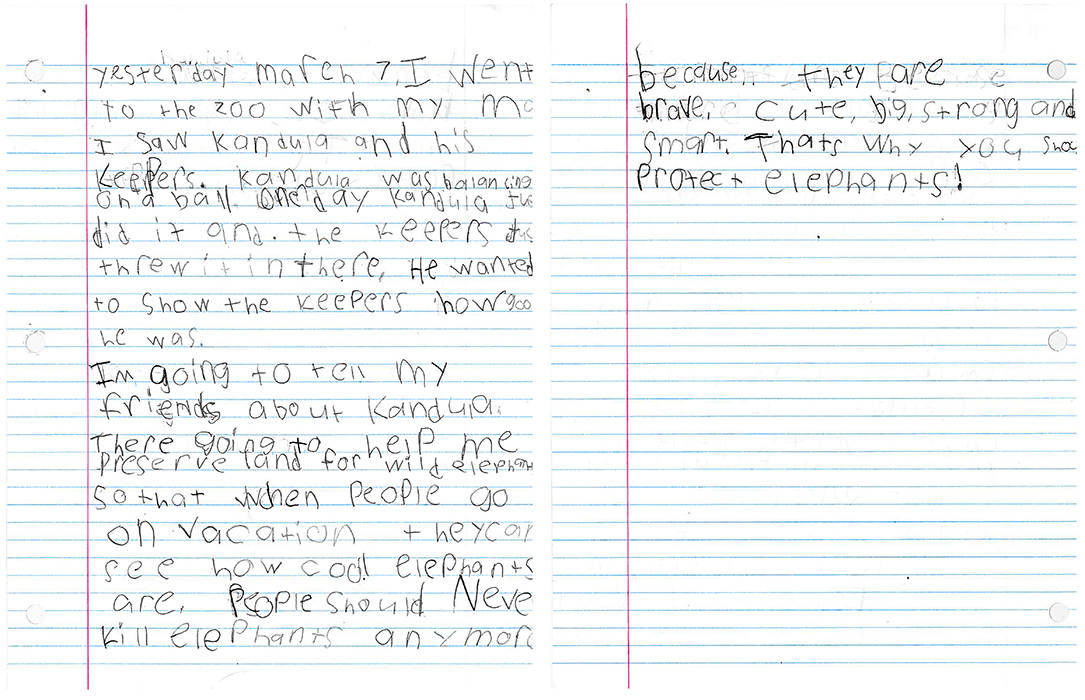 yesterday march 7, I went
to the zoo with my mo
I saw Kandula and his
keepers. Kandula was balancing
on a ball. One day Kandula jus
did it and. the keepers jus
threw it in there, He wanted
to show the keepers how goo
he was.
Im going to tell my
friends about Kandula.
There going to help me
preserve land for wild elephan
so that when people go
on vacation they can
see how cool elephants
are. People should Neve
kill elephants anymore
because they are
brave, cute, big, strong and
smart. Thats why you shou
protect elephants!